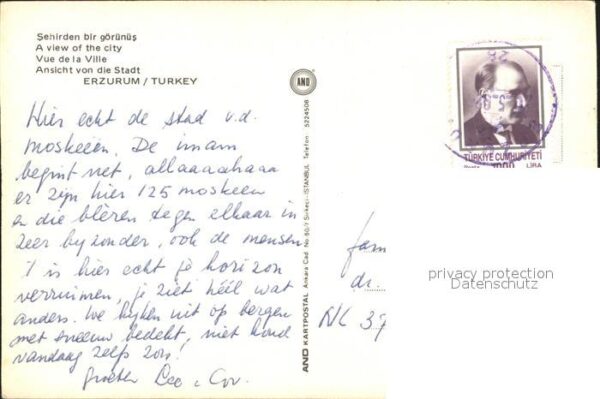 Şehirden bir görünüş
A view of the city
Vue de la Ville
Ansicht von die Stadt
ERZURUM / TURKEY
Hier echt de stad v.d.
moskeeën. De imam
begint net, allaaaaahaaa
er zijn hier 125 moskeeën
en die blèren tegen elkaar in
zeer byzonder, ook de mensen
't is hier echt je horizon
verruimen, je ziet héél wat
anders. We kyken uit op bergen
met sneeuw bedekt, niet koud
vandaag zelfs zon!
groeten Cor.
AND
AND KARTPOSTAL Ankara Cad. No. 60/7 Sirkeci - İSTANBUL Telefon 5224506
TÜRKİYE CUMHURİYETİ
1000 LİRA
fam
dr.
NL 37
privacy protection
Datenschutz